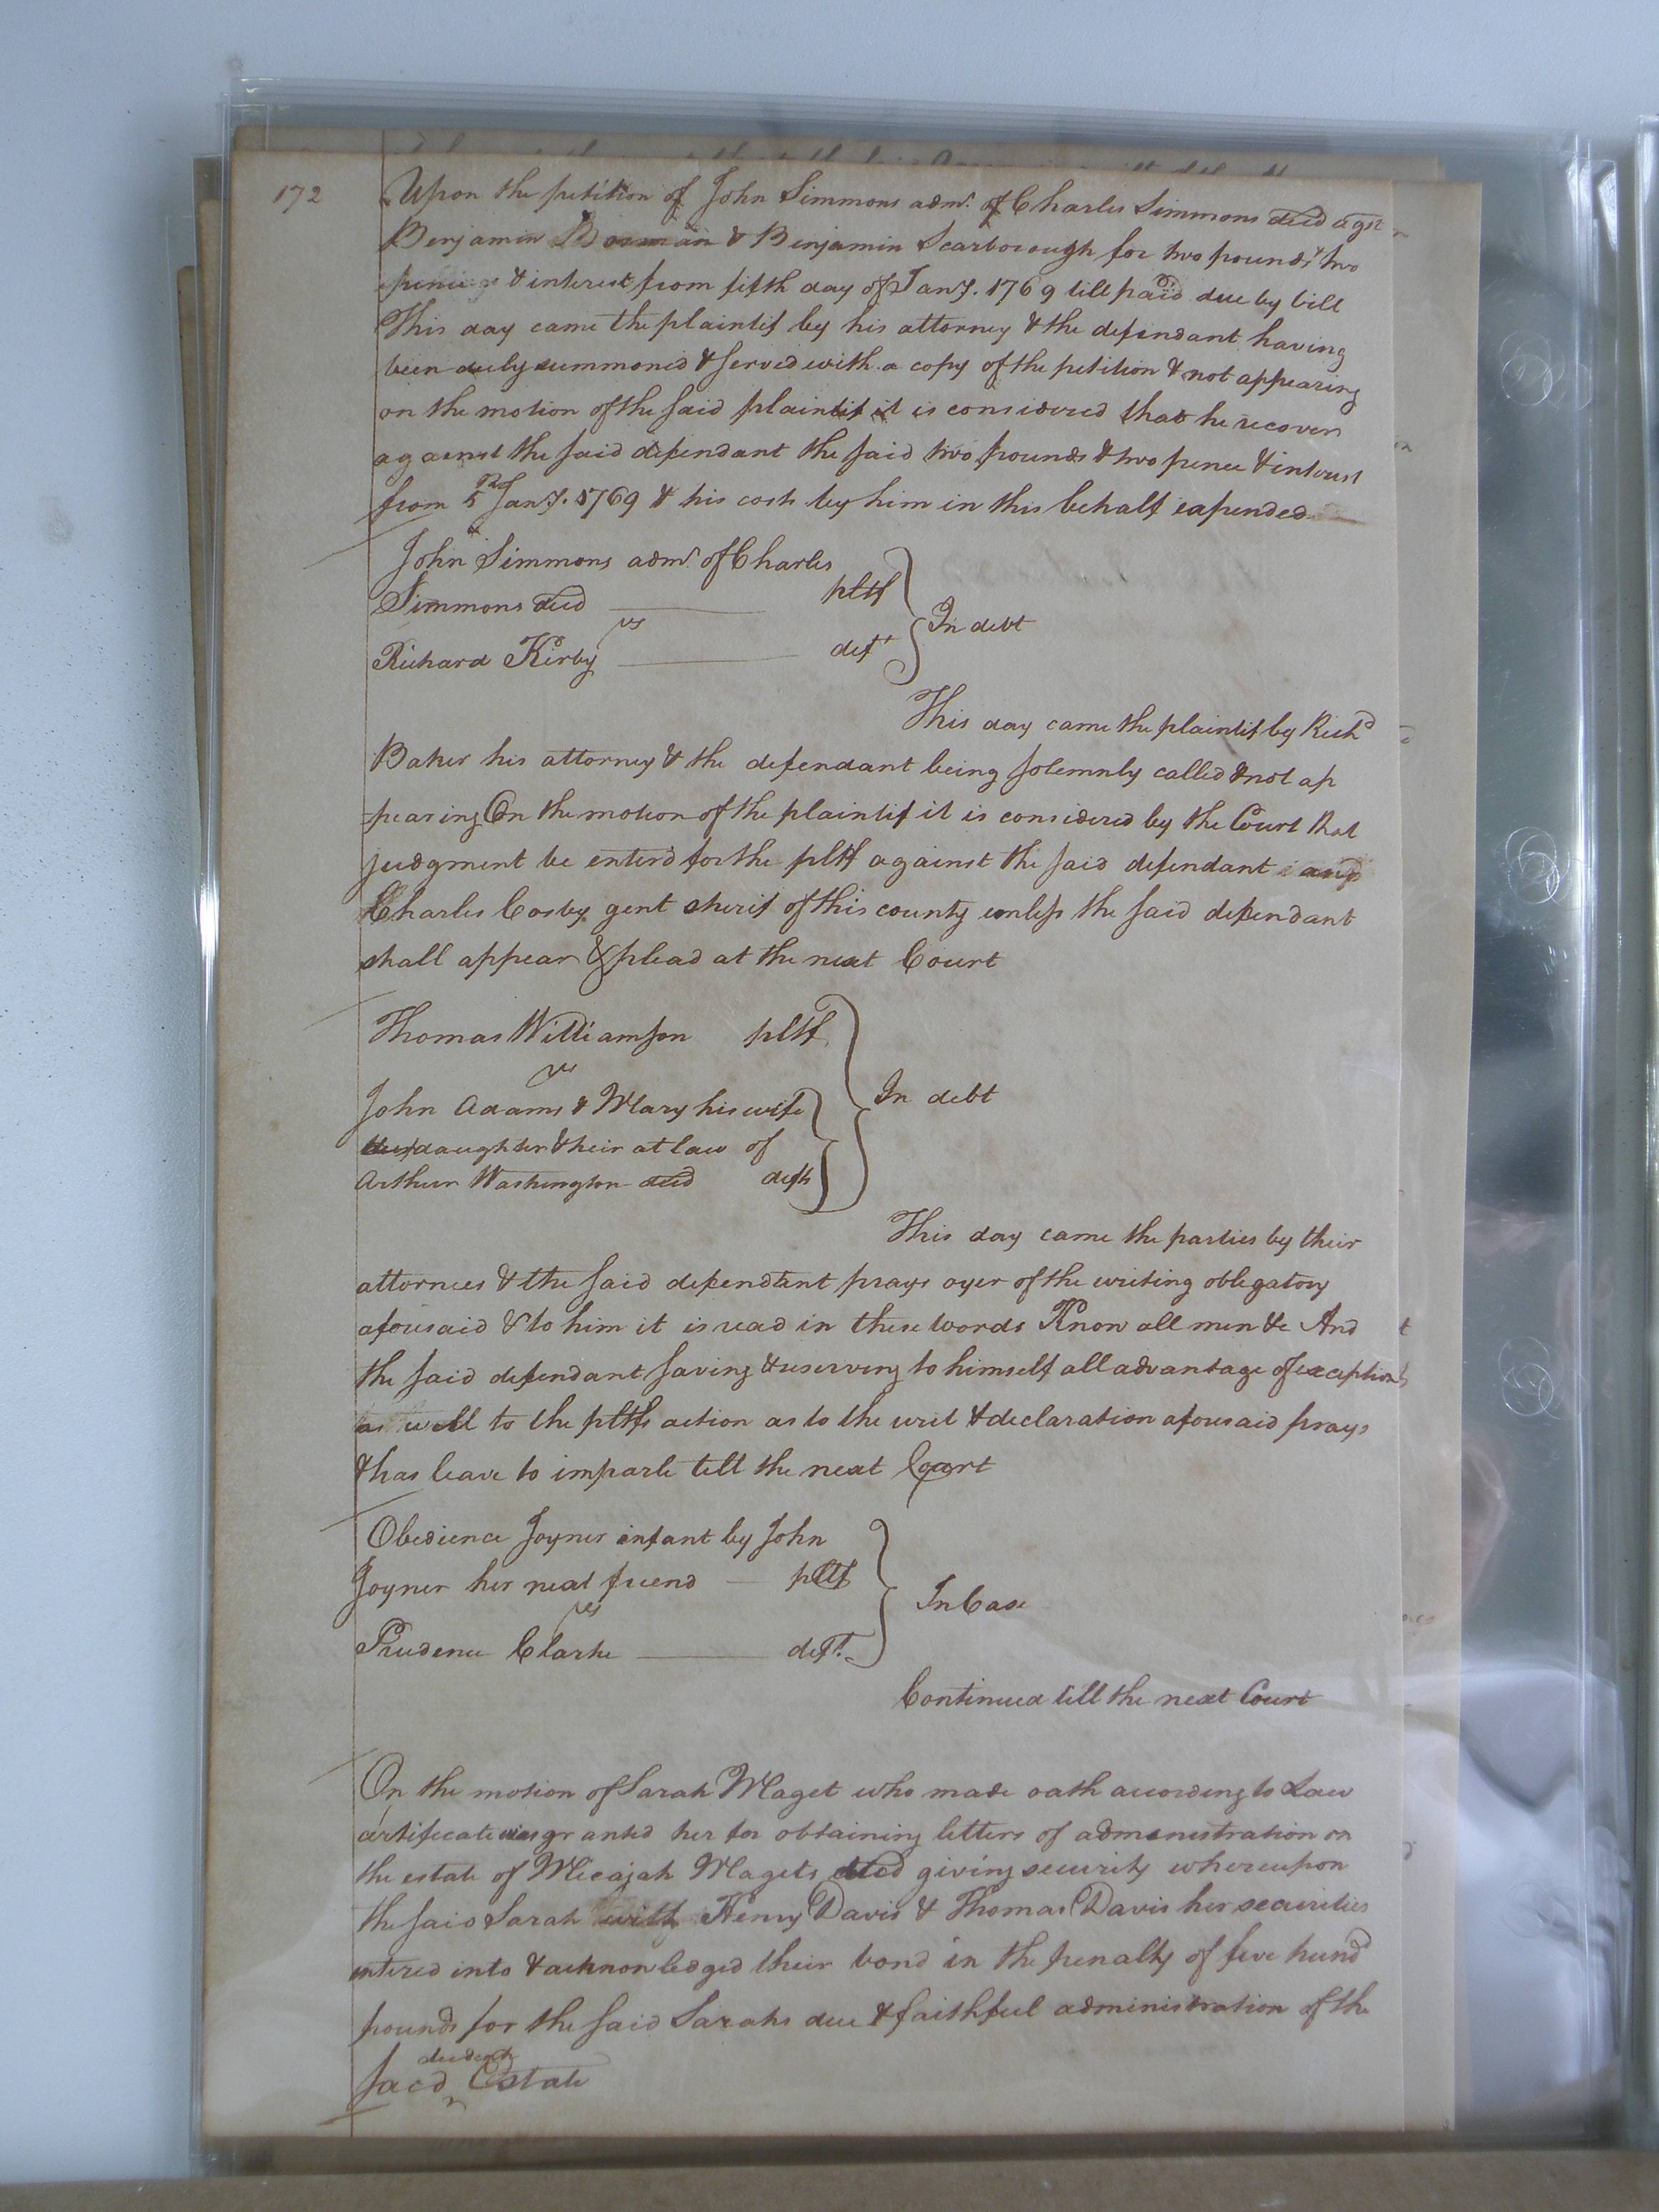 172
Upon the petition of John Simmons admr. of Charles Simmons decd agst
Benjamin & Benjamin Scarborough for two pounds & two
& interest from fifth day of Jany. 1769 till paid due by bill
This day came the plaintif by his attorney & the defendant having
been duly summoned & served with a copy of the petition & not appearing
on the motion of the said plaintif it is considered that he recover
against the said defendant the said two pounds & two pence & interest
from 5th Jany. 1769 & his costs by him in this behalf expended
John Simmons admr. of Charles
Simmons decd pltf
vs In debt
Richard Kirby deft
This day came the plaintif by Richd
Baker his attorney & the defendant being solemnly called & not ap
pearing On the motion of the plaintif it is considered by the Court that
judgment be enterd for the pltf against the said defendant and
Charles Cosby gent sherif of this county unless the said defendant
shall appear & plead at the next Court
Thomas Williamson pltf
vs
John Adams & Mary his wife In debt
daughter & heir at law of
Arthur Washington decd defts
This day came the parties by their
attornies & the said defendant prays oyer of the writing obligatory
aforesaid & to him it is read in these words Know all men &c And
the said defendant saving & reserving to himself all advantage of exceptions
as well to the pltfs action as to the writ & declaration aforesaid prays
& has leave to imparle till the next Court
Obedience Joyner infant by John
Joyner her next friend pltf
vs In Case
Prudence Clarke deft.
Continued till the next Court
On the motion of Sarah Maget who made oath according to Law
certificate was granted her for obtaining letters of administration on
the estate of Micajah Magets decd giving security whereupon
the said Sarah with Henry Davis & Thomas Davis her securities
entered into & acknowledged their bond in the penalty of five hund
pounds for the said Sarahs due & faithful administration of the
decedents
said Estate